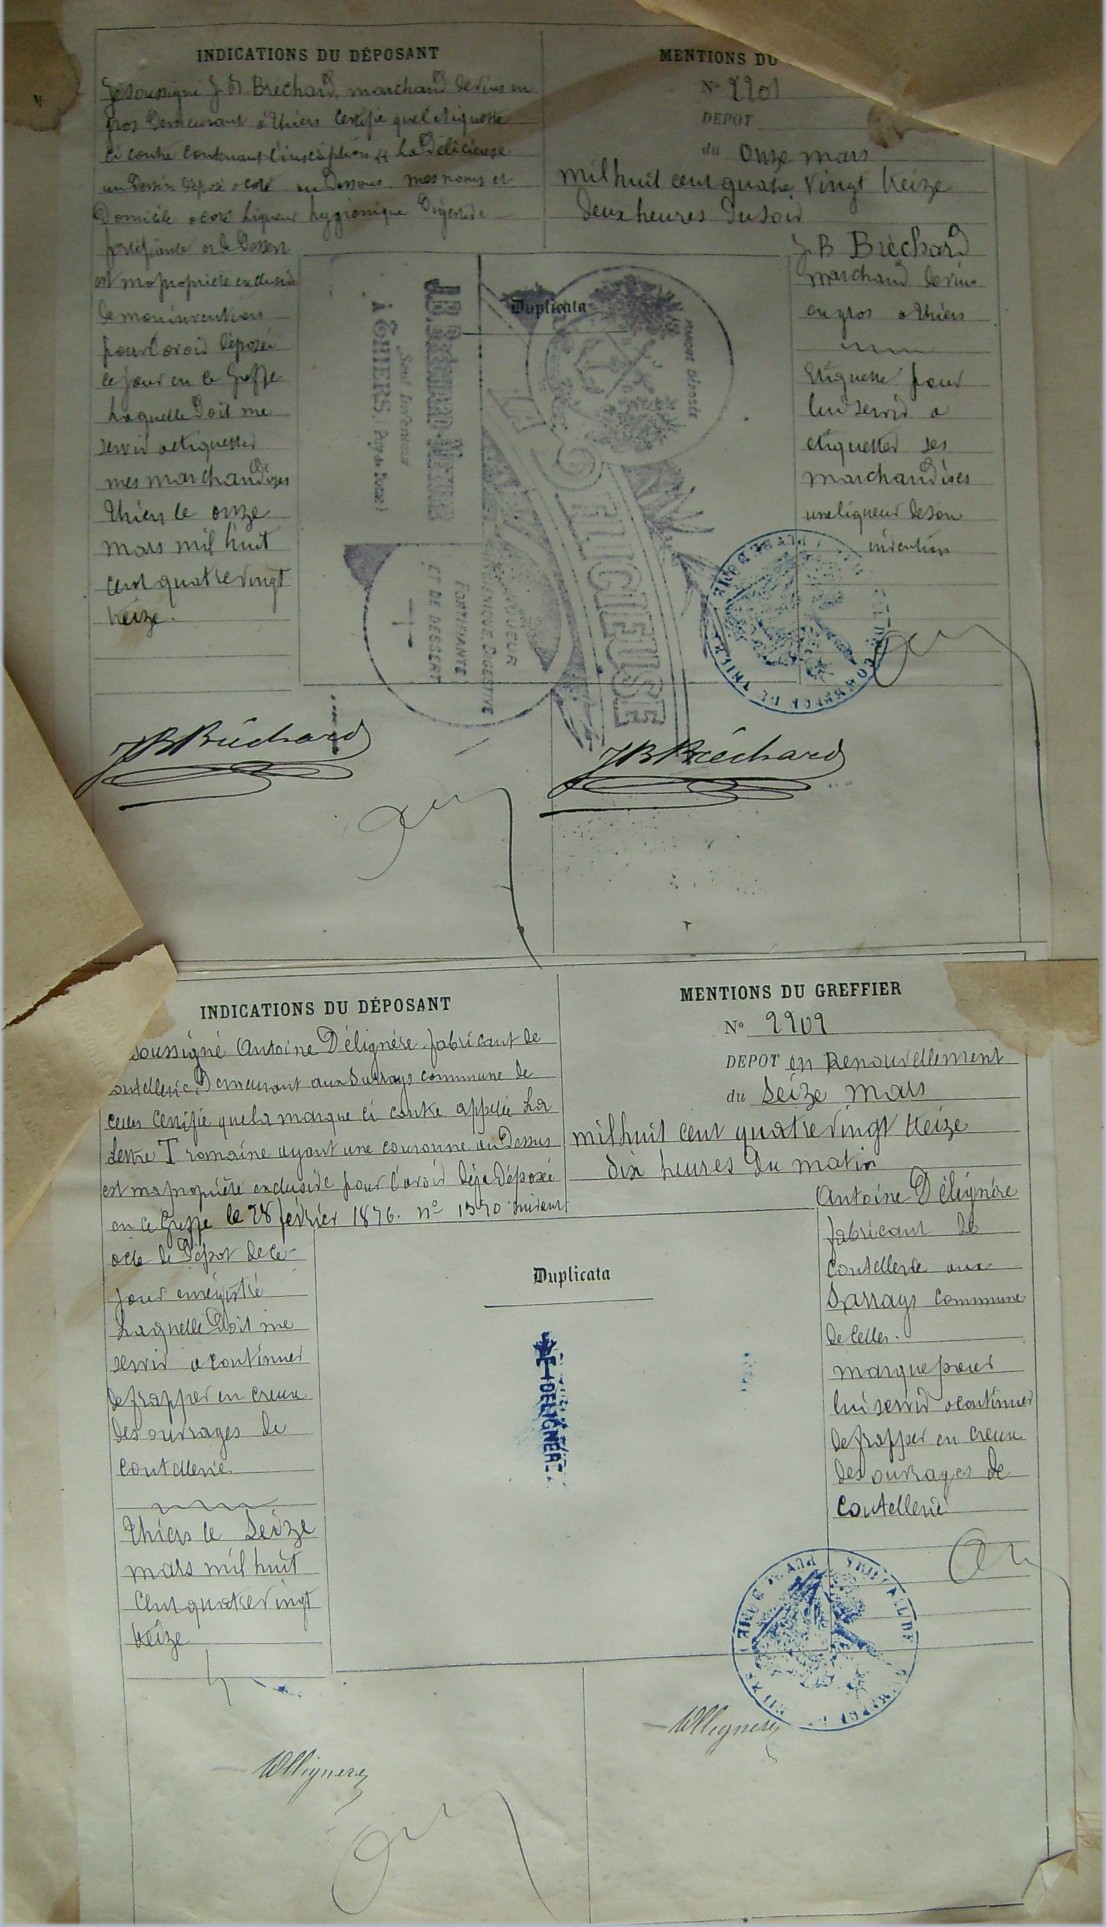 INDICATIONS DU DÉPOSANT
Je soussigné J. B. Brechard, marchand de vins en
gros demeurant à Thiers certifie que l'etiquette
ci contre contenant l'inscription "La Délicieuse
un dessin déposé a coté au dessous mes noms et
Domicile a coté Liqueur hygiénique Digestive
fortifiante et de Dessert
est ma propriété exclusive
de mon invention
pour l'avoir déposée
ce jour en ce Greffe
Laquelle doit me
servir a etiquetter
mes marchandises
Thiers le onze
mars mil huit
cent quatre vingt
treize.
JB Bréchard
MENTIONS DU
N° 2201
DEPOT
du onze mars
mil huit cent quatre vingt treize
deux heures du soir
J. B Bréchard
marchand de vins
en gros a Thiers
Etiquette pour
lui servir a
etiquetter ses
marchandises
une liqueur de son
invention
Duplicata
MARQUE DÉPOSÉE
LA DÉLICIEUSE
LIQUEUR
HYGIENIQUE, DIGESTIVE
FORTIFIANTE
ET DE DESSERT
J.B. BRECHARD
Seul Inventeur
à THIERS, (Puy de Dôme)
COMMERCE DE THIERS
PUY DE DOME
JB Bréchard
INDICATIONS DU DÉPOSANT
soussigné Antoine Délignère fabricant de
coutellerie, demeurant aux Sarrays commune de
Celles certifie que la marque ci contre appelée La
Lettre T romaine ayant une couronne au dessus
est ma propriété exclusive pour l'avoir déja déposée
en ce Greffe le 28 février 1876. n° 1540 suivant
acte de Dépot de ce
jour enregistré
Laquelle doit me
servir a continuer
de frapper en creux
des ouvrages de
coutellerie
Thiers le Seize
mars mil huit
cent quatre vingt
treize
MENTIONS DU GREFFIER
N° 2202
DEPOT en Renouvellement
du Seize mars
mil huit cent quatre vingt treize
dix heures du matin
Antoine Délignère
fabricant de
coutellerie aux
Sarrays commune
de Celles.
marque pour
lui servir a continuer
de frapper en creux
des ouvrages de
coutellerie
Duplicata
T DELIGNER
TRIBUNAL DE
PUY DE DOME